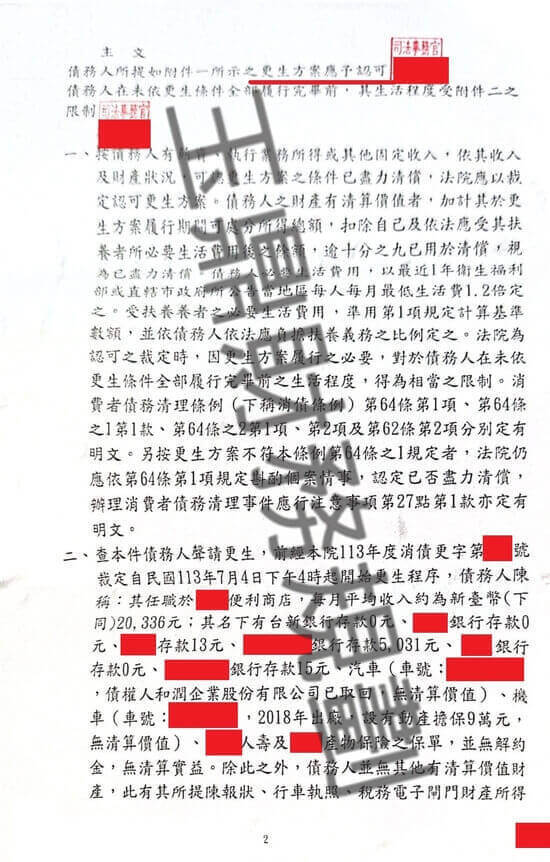 主文
債務人所提如附件一所示之更生方案應予認可
司法事務官
債務人在未依更生條件全部履行完畢前,其生活程度受附件二之
限制
司法事務官
一、按債務人有薪資、執行業務所得或其他固定收入,依其收入
及財產狀況,可認更生方案之條件已盡力清償,法院應以裁
定認可更生方案。債務人之財產有清算價值者,加計其於更
生方案履行期間可處分所得總額,扣除自己及依法應受其扶
養者所必要生活費用後之餘額,逾十分之九已用於清償,視
為已盡力清償。債務人必要生活費用,以最近1年衛生福利
部或直轄市政府所公告當地區每人每月最低生活費1.2倍定
之。受扶養者之必要生活費用,準用第1項規定計算基準
數額,並依債務人依法應負擔扶養義務之比例定之。法院為
認可之裁定時,因更生方案履行之必要,對於債務人在未依
更生條件全部履行完畢前之生活程度,得為相當之限制。消
費者債務清理條例(下稱消債條例)第64條第1項、第64條
之1第1款、第64條之2第1項、第2項及第62條第2項分別定有
明文。另按更生方案不符本條例第64條之1規定者,法院仍
應依第64條第1項規定斟酌個案情事,認定已否盡力清償,
辦理消費者債務清理事件應行注意事項第27點第1款亦定有
明文。
二、查本件債務人聲請更生,前經本院113年度消債更字第號
裁定自民國113年7月4日下午4時起開始更生程序,債務人陳
稱:其任職於便利商店,每月平均收入約為新臺幣(下
同)20,336元;其名下有台新銀行存款0元、銀行存款0
元、存款13元、銀行存款5,031元、銀行
存款0元、銀行存款15元、汽車(車號:
,債權人和潤企業股份有限公司已取回,無清算價值)、機
車(車號:,2018年出廠,設有動產擔保9萬元,
無清算價值)、人壽及產物保險之保單,並無解約
金,無清算實益。除此之外,債務人並無其他有清算價值財
產,此有其所提陳報狀、行車執照、稅務電子閘門財產所得
2